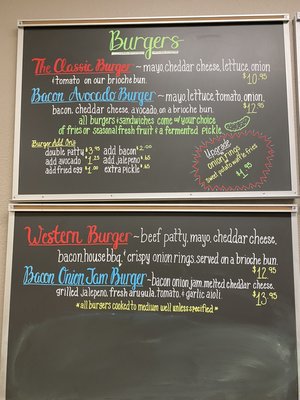 Burgers
The Classic Burger ~ mayo, cheddar cheese, lettuce, onion
& tomato on our brioche bun. $10.95
Bacon Avocado Burger ~ mayo, lettuce, tomato, onion,
bacon, cheddar cheese, avocado on a brioche bun. $12.95
all burgers & sandwiches come with your choice
of fries or seasonal fresh fruit & a fermented pickle.
Burger Add Ons
double patty $3.95 add bacon $2.00
add avocado $1.25 add jalepeno $.65
add fried egg $1.00 extra pickle $.65
Upgrade
onion rings
sweet potato waffle fries
$1.95
Western Burger ~ beef patty, mayo, cheddar cheese,
bacon, house bbq, & crispy onion rings, served on a brioche bun.
$12.95
Bacon Onion Jam Burger ~ bacon onion jam, melted cheddar cheese,
grilled jalepeno, fresh arugula, tomato, & garlic aioli. $13.95
* all burgers cooked to medium well unless specified *